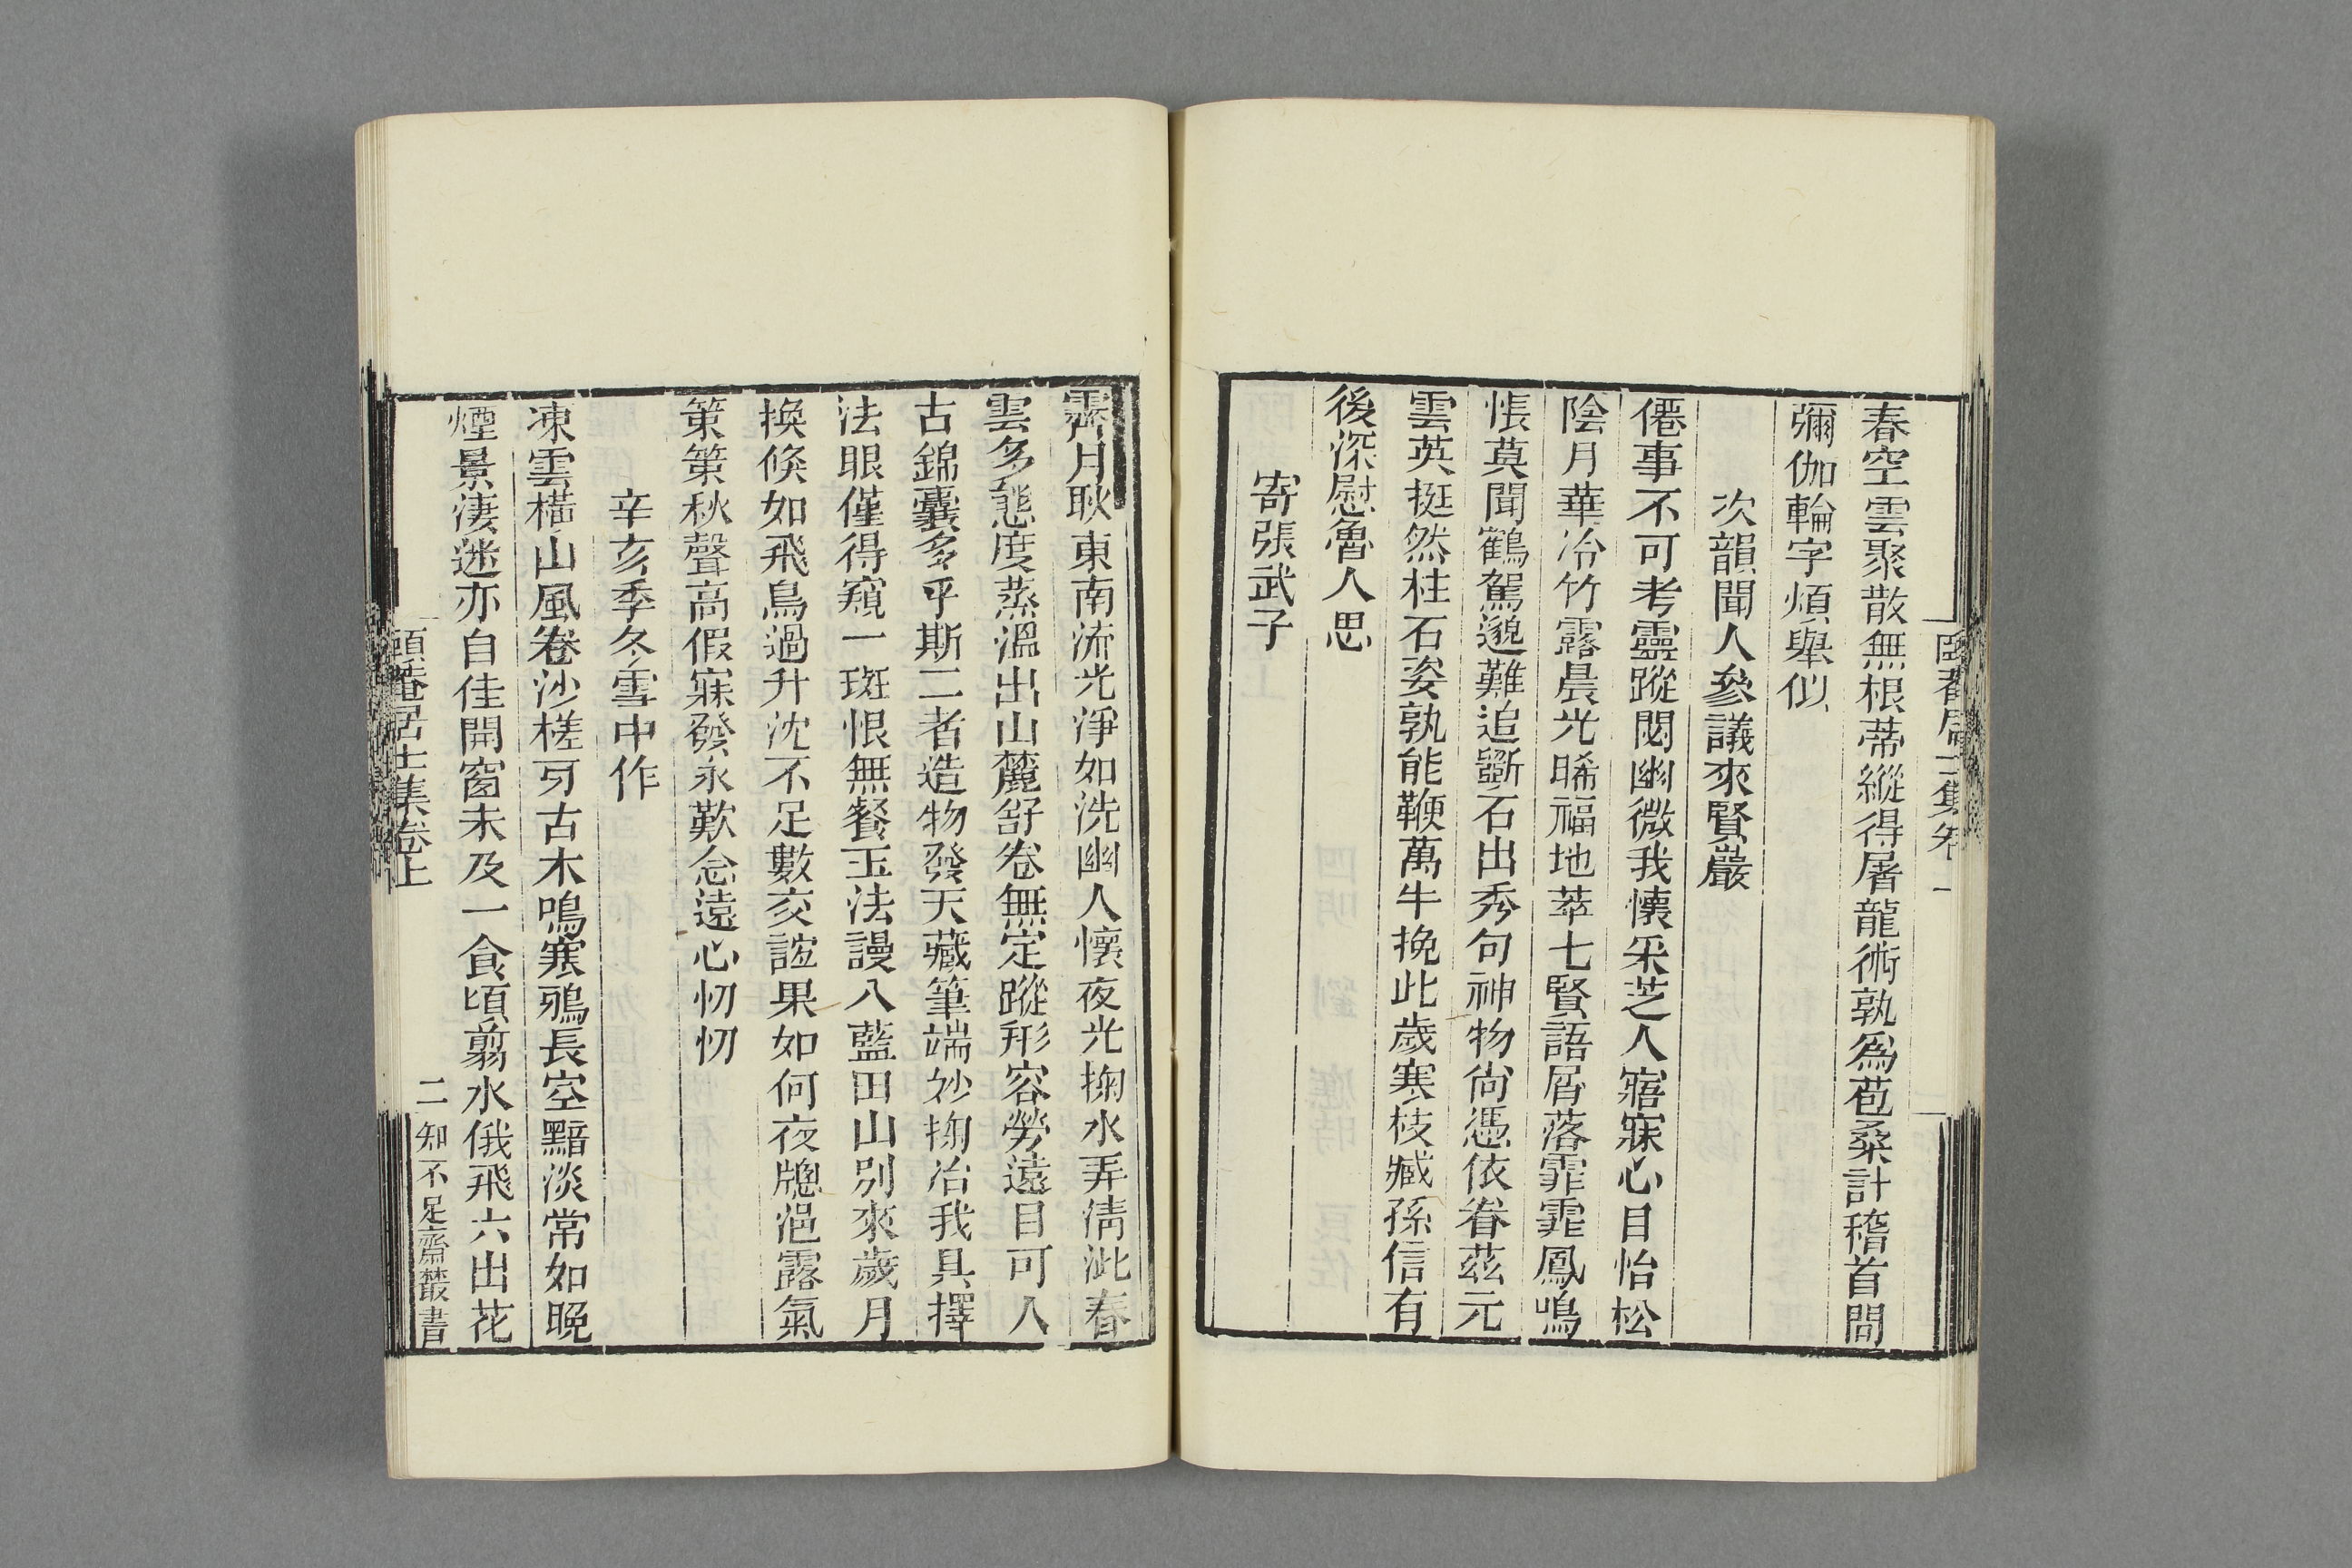 春空雲聚散無根蒂縱得屠龍術孰爲苞桑計稽首問
彌伽輪字煩舉似
次韻聞人參議來賢巖
僊事不可考靈蹤閟幽微我懷采芝人寤寐心目怡松
陰月華冷竹露晨光晞福地萃七賢語屑落霏霏鳳鳴
悵莫聞鶴駕邈難追斲石出秀句神物尙憑依眷茲元
雲英挺然柱石姿孰能鞭萬牛挽此歲寒枝臧孫信有
後深慰魯人思
寄張武子
霽月耿東南流光淨如洗幽人懷夜光掬水弄淸泚春
雲多態度蒸溫出山麓舒卷無定蹤形容勞遠目可人
古錦囊多乎斯二者造物發天藏筆端妙掬冶我具擇
法眼僅得窺一斑恨無餐玉法謾入藍田山別來歲月
換倐如飛鳥過升沈不足數亥詃果如何夜牕浥露氣
策策秋聲高假寐發永歎念遠心忉忉
辛亥季冬雪中作
凍雲橫山風卷沙槎牙古木鳴寒鴉長空黯淡常如晚
煙景淒迷亦自佳開窗未及一食頃翦水俄飛六出花
頤菴居士集卷上
二
知不足齋叢書